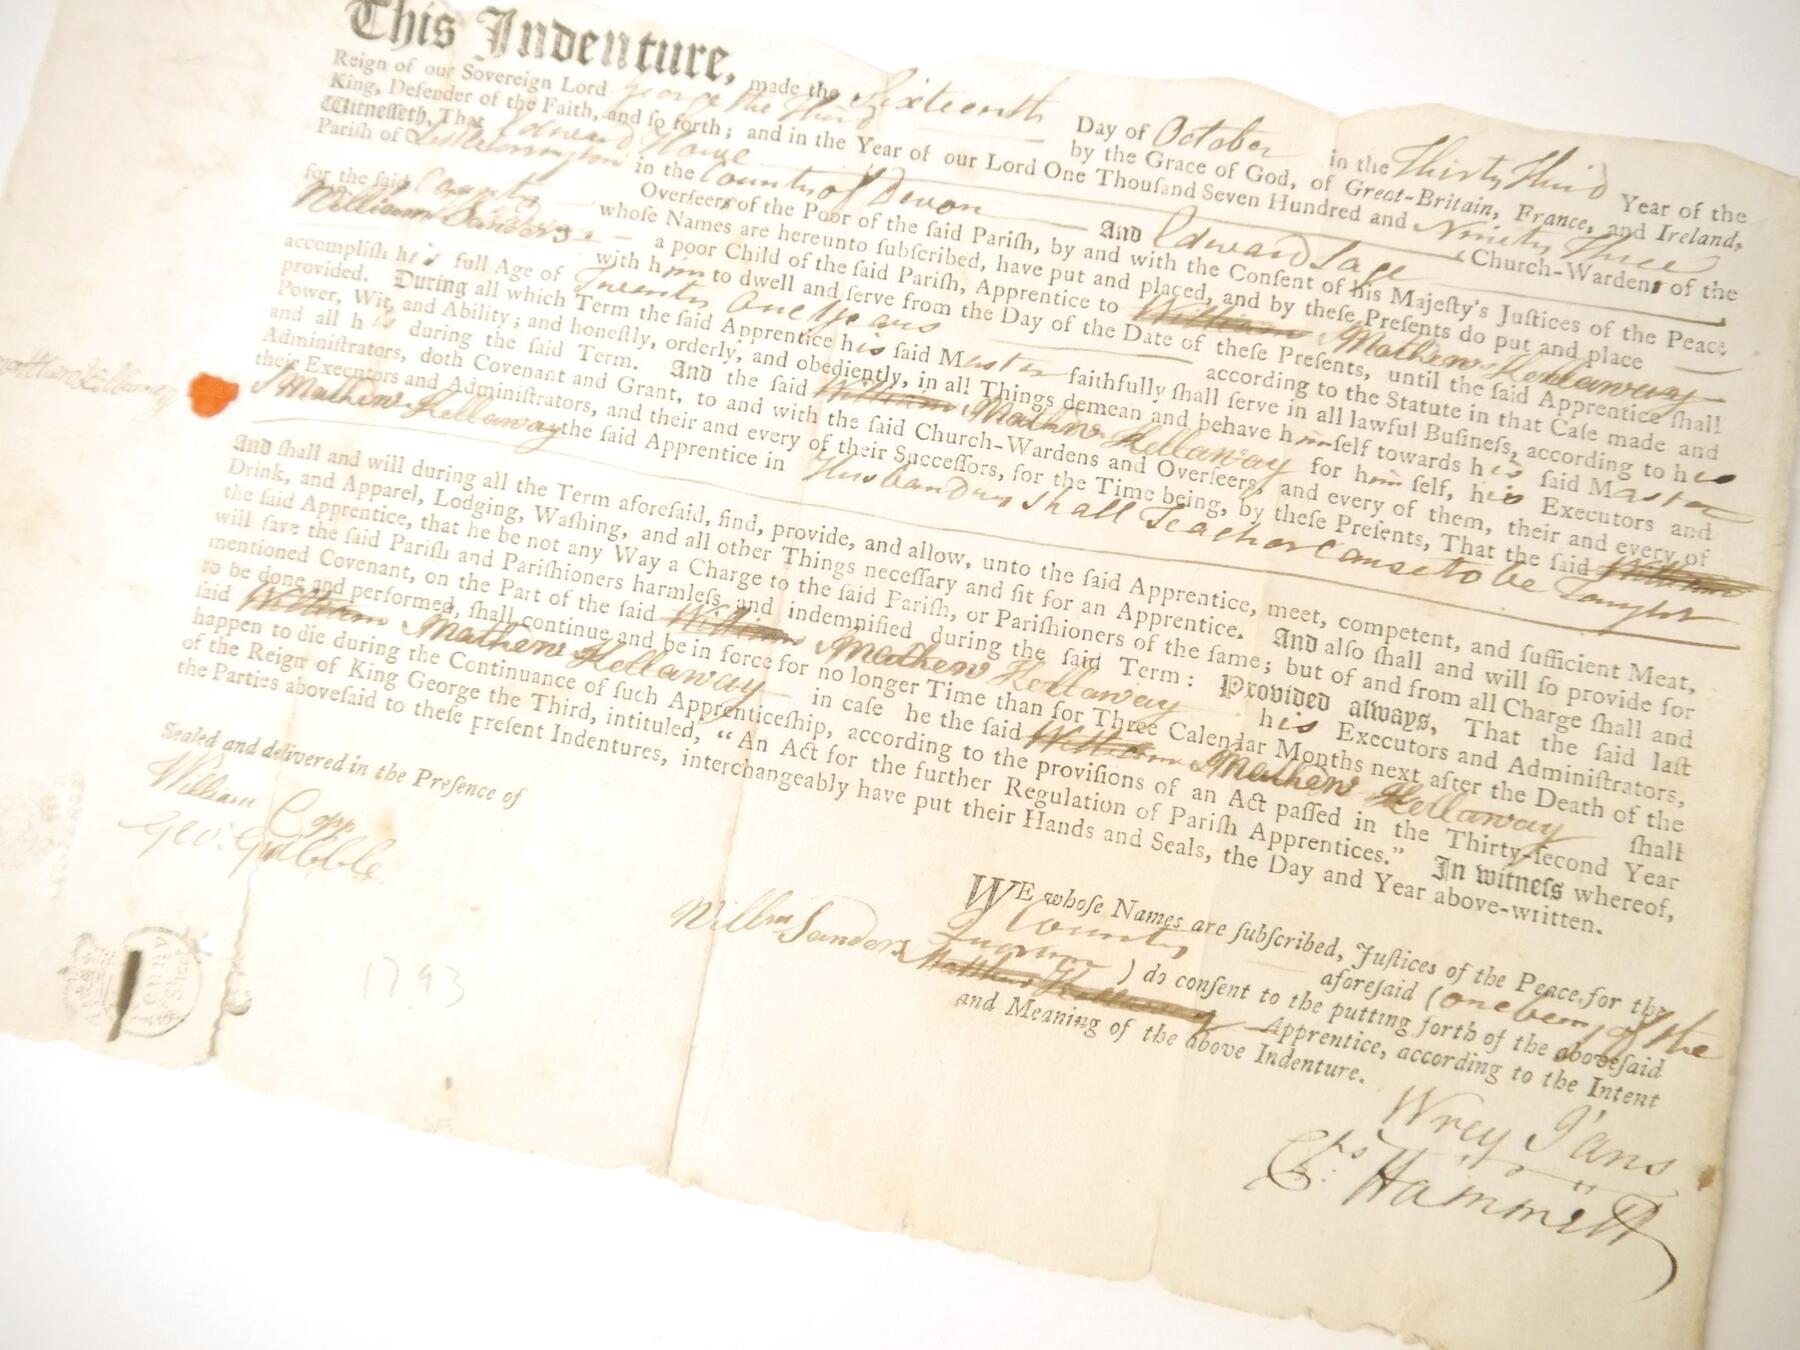 This Indenture, made the Sixteenth Day of October in the Thirty Third Year of the
Reign of our Sovereign Lord George the Third by the Grace of God, of Great-Britain, France, and Ireland,
King, Defender of the Faith, and ſo forth; and in the Year of our Lord One Thouſand Seven Hundred and Ninety Three
Witneſſeth, That Edward Howe And Edward Sage Church-Wardens of the
Pariſh of in the County of Devon
Overſeers of the Poor of the ſaid Pariſh, by and with the Conſent of his Majeſty's Juſtices of the Peace
for the ſaid County whoſe Names are hereunto ſubſcribed, have put and placed, and by theſe Preſents do put and place
William Sanders a poor Child of the ſaid Pariſh, Apprentice to William Mathew Kellaway
with him to dwell and ſerve from the Day of the Date of theſe Preſents, until the ſaid Apprentice ſhall
accompliſh his full Age of Twenty One Years according to the Statute in that Caſe made and
provided. During all which Term the ſaid Apprentice his ſaid Master faithfully ſhall ſerve in all lawful Buſineſs, according to his
Power, Wit, and Ability; and honeſtly, orderly, and obediently, in all Things demean and behave himſelf towards his ſaid Master
and all his during the ſaid Term. And the ſaid William Mathew Kellaway for himſelf, his Executors and
Adminiſtrators, doth Covenant and Grant, to and with the ſaid Church-Wardens and Overſeers, and every of them, their and every of
their Executors and Adminiſtrators, and their and every of their Succeſſors, for the Time being, by theſe Preſents, That the ſaid William
Mathew Kellaway the ſaid Apprentice in Husbandry shall Teach or Cause to be Taught
And ſhall and will during all the Term aforeſaid, find, provide, and allow, unto the ſaid Apprentice, meet, competent, and ſufficient Meat,
Drink, and Apparel, Lodging, Waſhing, and all other Things neceſſary and fit for an Apprentice. And alſo ſhall and will ſo provide for
the ſaid Apprentice, that he be not any Way a Charge to the ſaid Pariſh, or Pariſhioners of the ſame; but of and from all Charge ſhall and
will ſave the ſaid Pariſh and Pariſhioners harmleſs and indemnified during the ſaid Term: Provided always, That the ſaid laſt
mentioned Covenant, on the Part of the ſaid William Mathew Kellaway his Executors and Adminiſtrators,
to be done and performed, ſhall continue and be in force for no longer Time than for Three Calendar Months next after the Death of the
ſaid William Mathew Kellaway in caſe he the ſaid William Mathew Kellaway ſhall
happen to die during the Continuance of ſuch Apprenticeſhip, according to the proviſions of an Act paſſed in the Thirty-ſecond Year
of the Reign of King George the Third, intituled, “An Act for the further Regulation of Pariſh Apprentices.” In witneſs whereof,
the Parties aboveſaid to theſe preſent Indentures, interchangeably have put their Hands and Seals, the Day and Year above-written.
Sealed and delivered in the Preſence of
William Copp
Geo: Gribble
1793
WE whoſe Names are ſubſcribed, Juſtices of the Peace for the
County aforeſaid (one being of the
Quorum) do conſent to the putting forth of the aboveſaid
Willm Sanders Matthew Kellaway Apprentice, according to the Intent
and Meaning of the above Indenture.
Wrey I'ans
Hammett